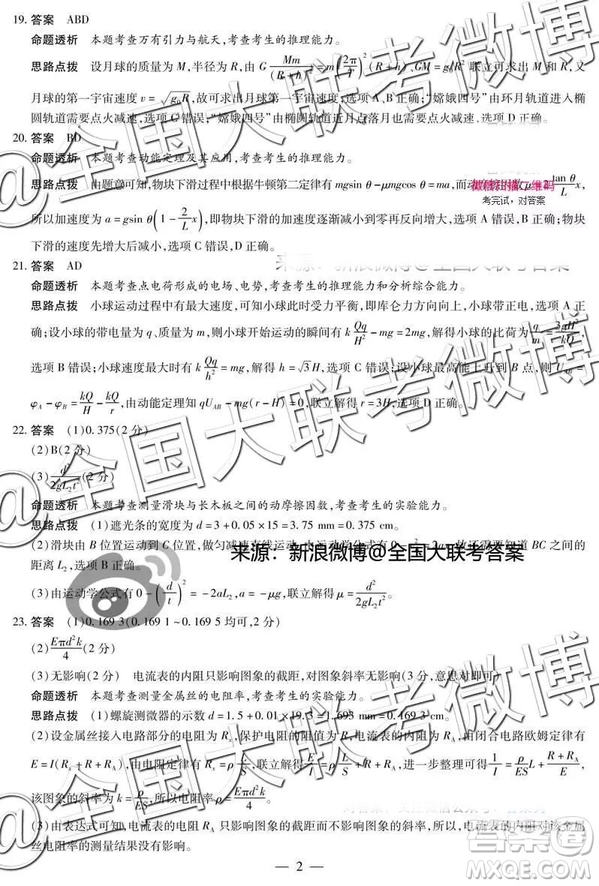 19. 答案 ABD
命题透析 本题考查万有引力与航天,考查考生的推理能力。
思路点拨 设月球的质量为 M,半径为 R,由 G Mm/(R+h)² = m(2π/T)²(R+h), GM = g₀R² 联立可求出 M 和 R,又
月球的第一宇宙速度 v = √g₀R,故可求出月球的第一宇宙速度,选项 A、B 正确;“嫦娥四号”由环月轨道进入椭
圆轨道需要点火减速,选项 C 错误;“嫦娥四号”由椭圆轨道近月点落月也需要点火减速,选项 D 正确。
20. 答案 BD
命题透析 本题考查动能定理及其应用,考查考生的推理能力。
思路点拨 由题意可知,物块下滑过程中根据牛顿第二定律有 mgsin θ − μmgcos θ = ma,而动 tan θ/L x,
考完试,对答案
所以加速度为 a = gsin θ(1 − 2/L x),即物块下滑的加速度逐渐减小到零再反向增大,选项 B 正确;物块
下滑的速度先增大后减小,选项 C 错误,选项 D 正确。
来源:新浪微博@全国大联考答案
21. 答案 AD
命题透析 本题考查点电荷形成的电场、电势,考查考生的推理性和分析综合能力。
思路点拨 小球运动过程中有最大速度,可知小球此时受力平衡,即库仑力方向向上,小球带正电,选项 A 正
确;设小球的带电量为 q、质量为 m,则小球开始运动的瞬间有 k Qq/H² − mg = 2mg,解得小球的比荷为 q/m = 3gH²/kQ,
选项 B 错误;小球速度最大时有 k Qq/h² = mg,解得 h = √3H,选项 C 错误;设小球最高能上升到 B 点,则 U_AB =
φ_A − φ_B = kQ/H − kQ/r,由动能定理知 qU_AB − mg(r − H) = 0,联立解得 r = 3H,选项 D 正确。
22. 答案 (1)0.375(2 分)
(2)B(2 分)
(3)d²/2gL₂t²(2 分)
命题透析 本题考查测量滑块与长木板之间的动摩擦因数,考查考生的实验能力。
思路点拨 (1)遮光条的宽度为 d = 3 + 0.05 × 15 = 3.75 mm = 0.375 cm。
(2)滑块由 B 位置运动到 C 位置,做匀减速直线运动 需要知道 BC 之间的
来源:新浪微博@全国大联考答案
距离 L₂,选项 B 正确。
(3)由运动学公式有 0 − (d/t)² = −2aL₂, a = −μg,联立解得 μ = d²/2gL₂t²。
23. 答案 (1)0.169 3(0.169 1 ~ 0.169 5 均可)(2 分)
(2)Eπd²k/4(2 分)
(3)无影响(2 分) 电流表的内阻只影响图象的截距,对图象斜率无影响(3 分,意思对即可)
命题透析 本题考查测量金属丝的电阻率,考查考生的实验能力。
思路点拨 (1)螺旋测微器的示数 d = 1.5 + 0.01 × 19.3 = 1.693 mm = 0.169 3 cm。
(2)设金属丝接入电路部分的电阻为 R,保护电阻的阻值为 R,电流表的内阻为 R_A,由闭合电路欧姆定律有
E = I(R + R + R_A),由电阻定律有 R = ρ L/S, E/I = ρ L/S + R + R_A,进一步整理可得 1/I = ρ/ES L + (R + R_A)/E,
该图象的斜率为 k = ρ/ES
(3)由表达式可知,电流表的内阻 R_A 只影响图象的截距而不影响图象的斜率,所以,电流表的内阻对该金属
丝电阻率的测量结果没有影响。
— 2 —
@全国大联考微博
@全国大联考微博
@全国大联考微博
答案圈
MXQE.COM